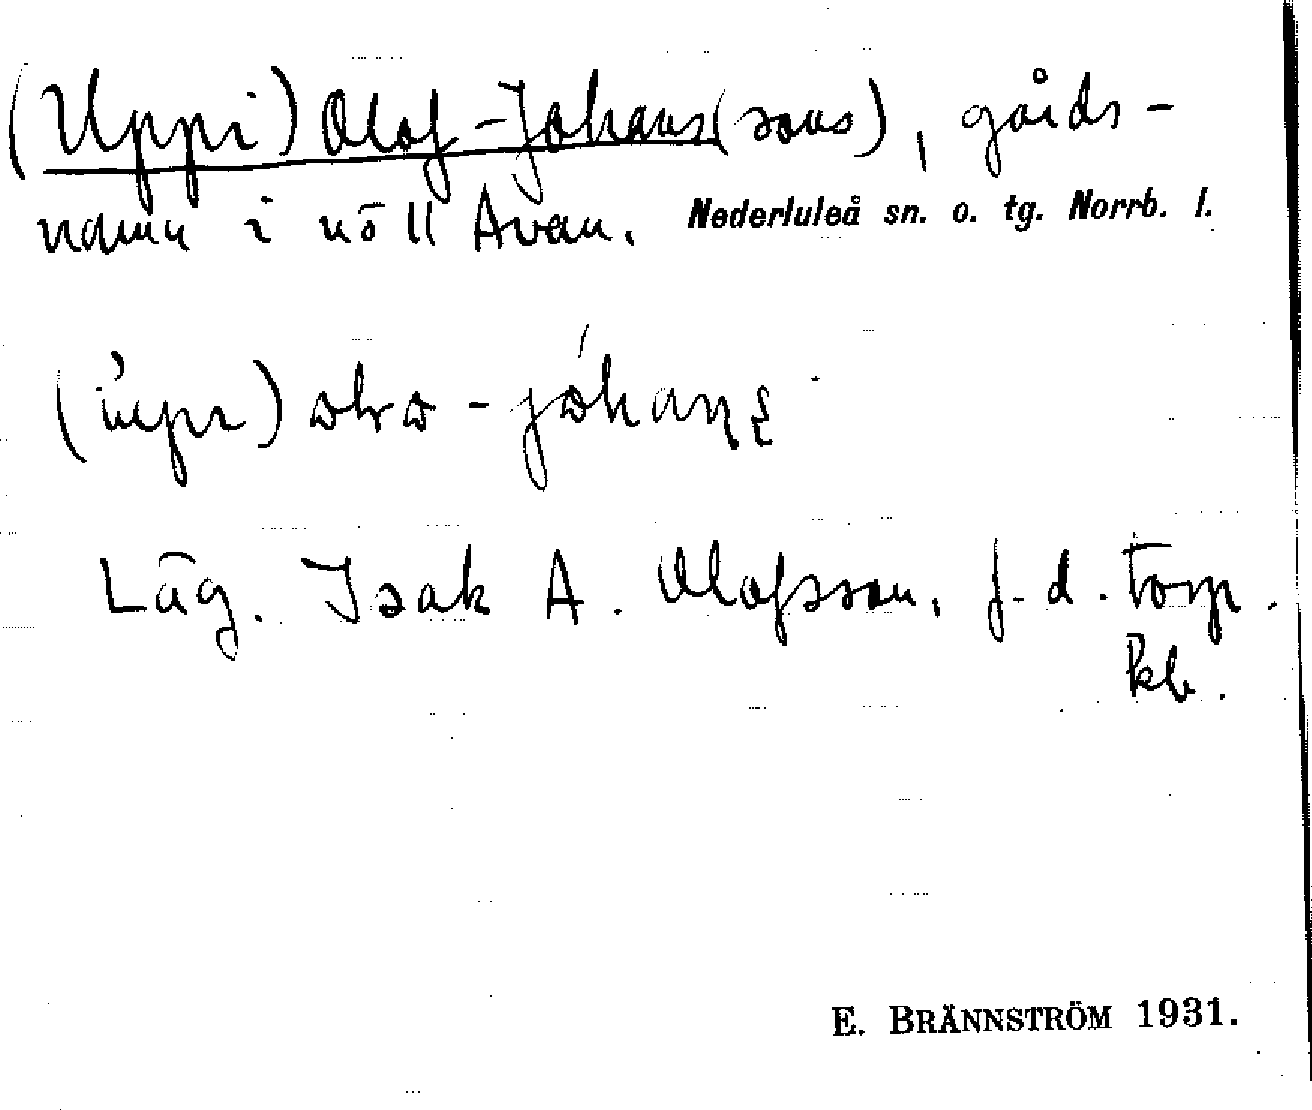 (Uppi) Olof-Johans(sons), gårds-
namn i nö 11 Avan. Nederluleå sn. o. tg. Norrb. l.
Läg. Isak A. Olofsson, f.d. torp.
E. BRÄNNSTRÖM 1931.